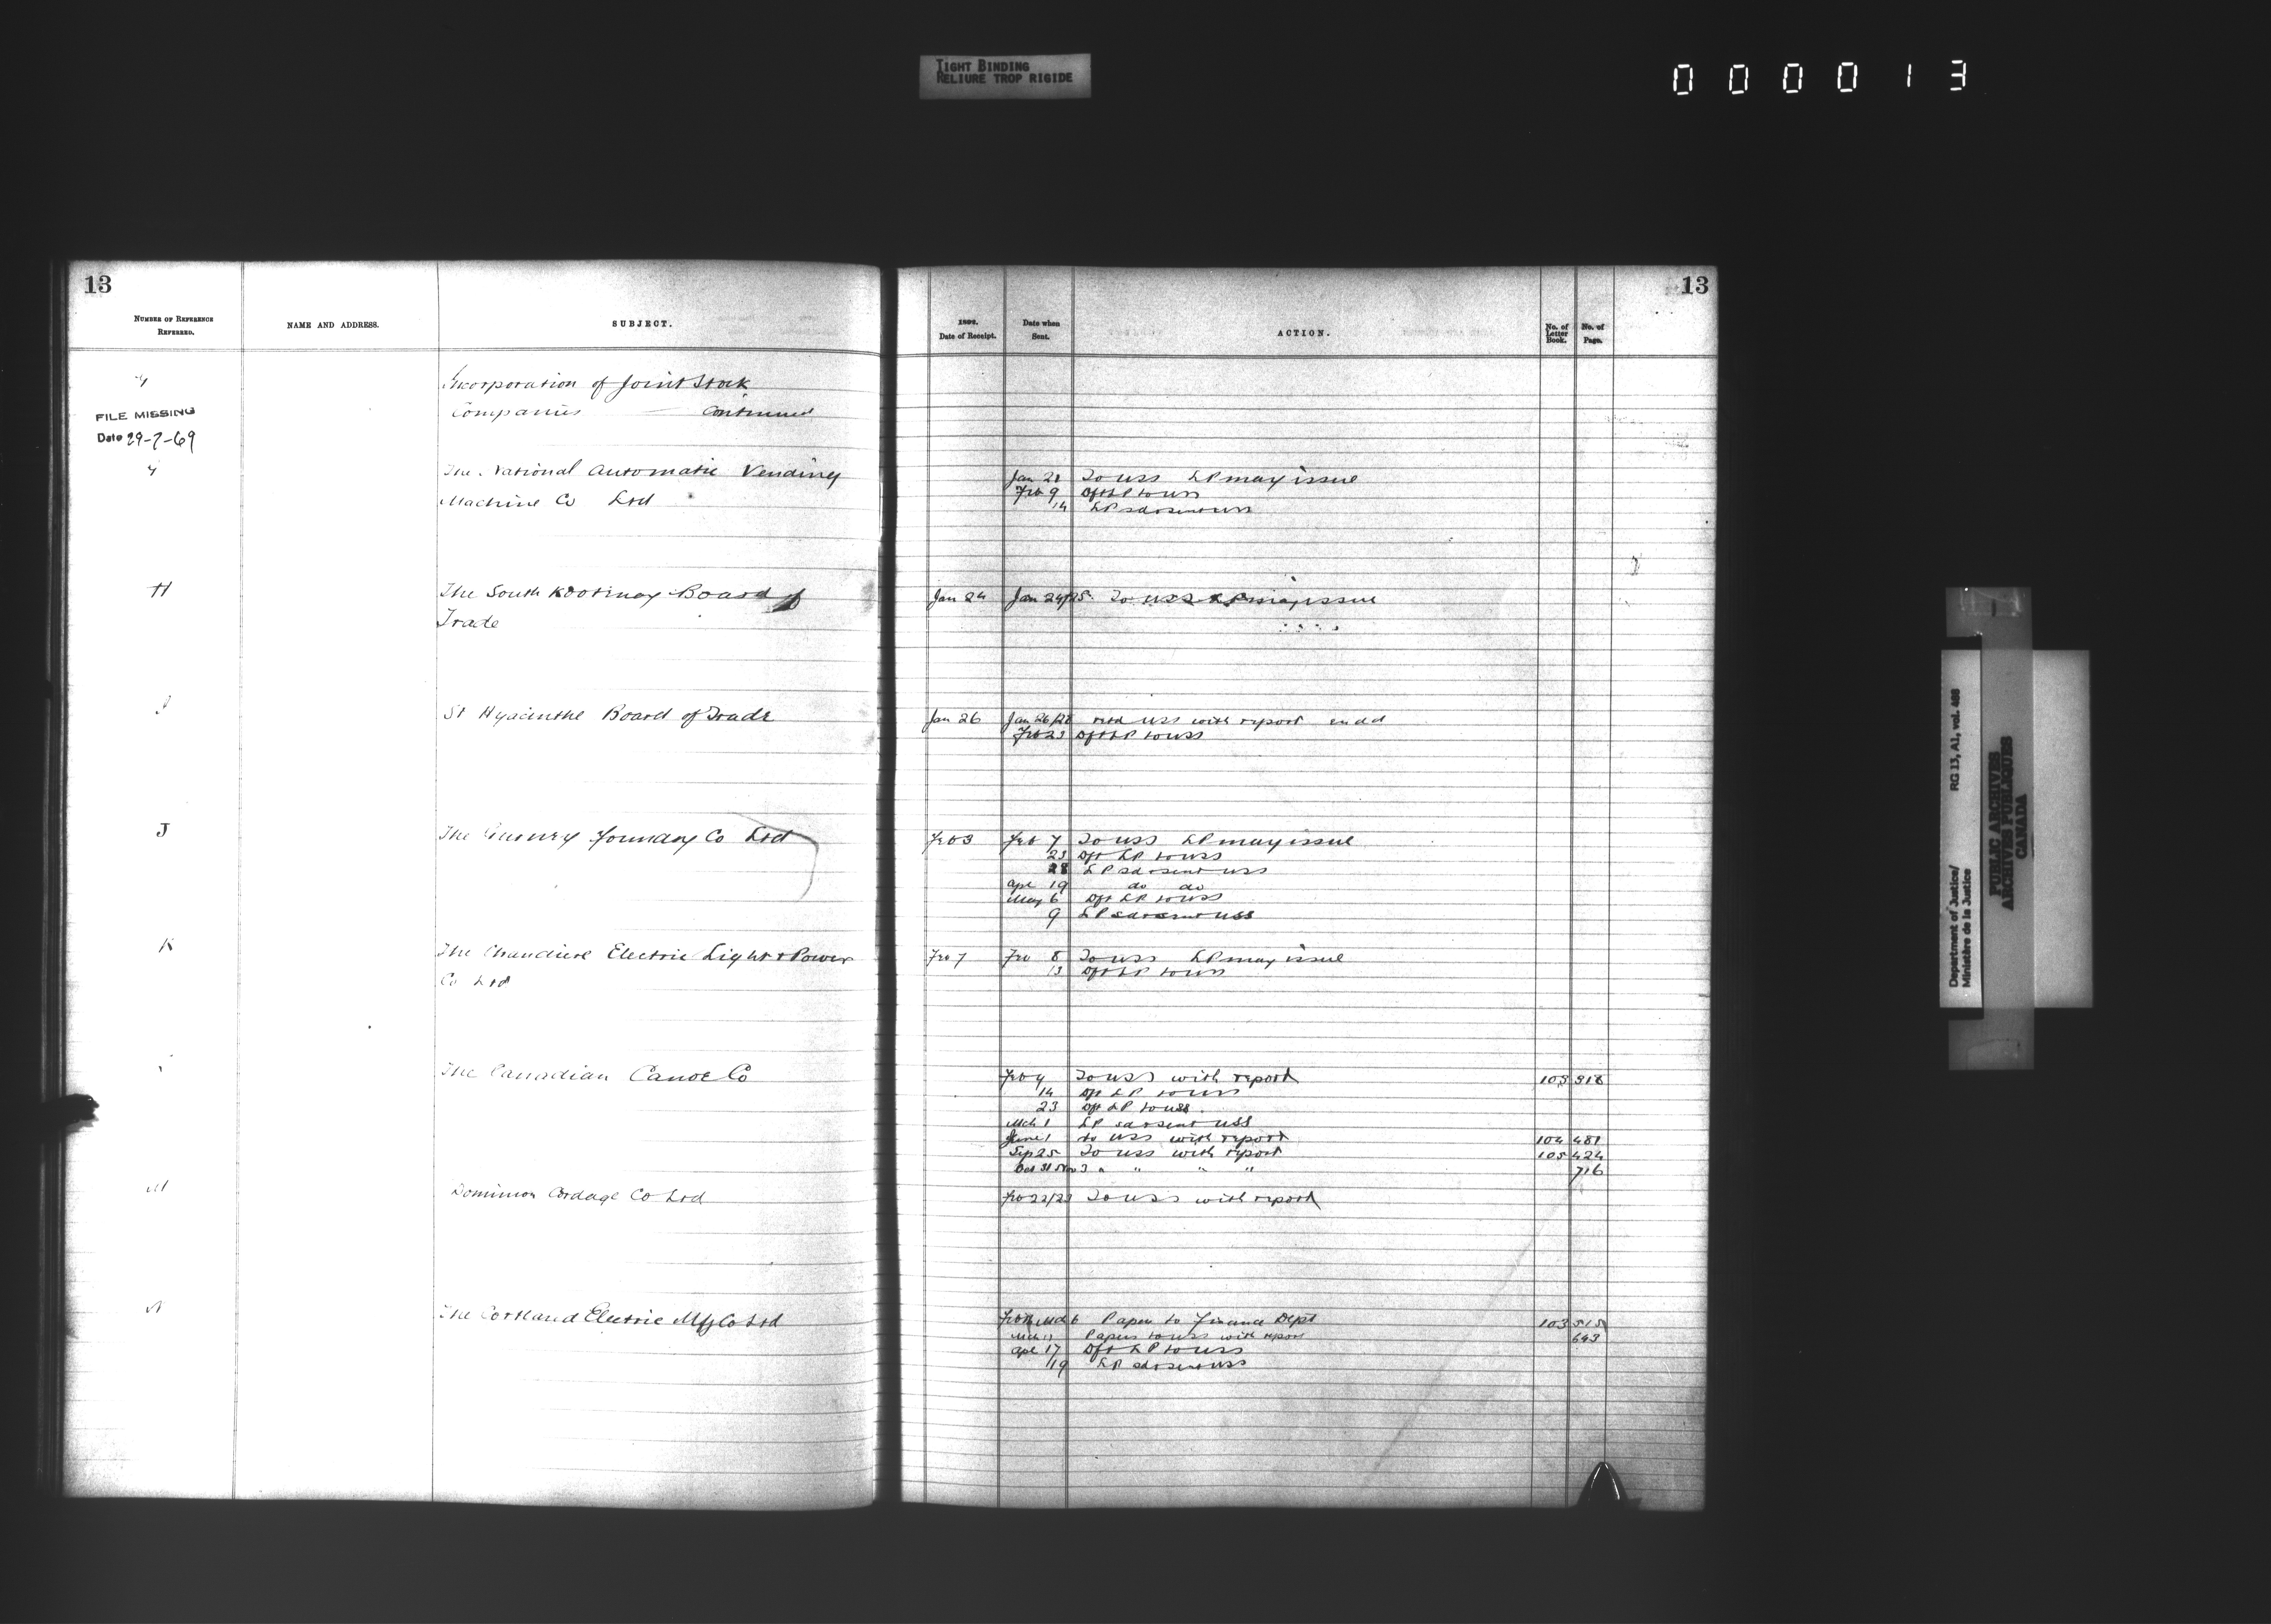 TIGHT BINDING
RELIURE TROP RIGIDE
000013
13
13
NUMBER OF REFERENCE
REFERRED.
NAME AND ADDRESS.
SUBJECT.
Date of Receipt.
Date when
Sent.
ACTION.
No. of
Letter
Book.
No. of
Page.
Incorporation of Joint Stock
Companies — Continued
FILE MISSING
Date 29-7-69
The National Automatic Vending
Machine Co Ltd
Jan 21 To USS LP may issue
Feb 9 Dft LP to USS
14 LP sd & sent USS
H
The South Kootenay Board of
Trade
Jan 24 Jan 24/25 To USS LP may issue
St Hyacinthe Board of Trade
Jan 26 Jan 26/28 retd USS with report endd
Feb 23 Dft LP to USS
J
The Gurney Foundry Co Ltd
Feb 3 Feb 7 To USS LP may issue
23 Dft LP to USS
28 LP sd & sent USS
Apl 19 do do
May 6 Dft LP to USS
9 LP sd & sent USS
K
The Chaudiere Electric Light & Power
Co Ltd
Feb 7 Feb 8 To USS LP may issue
13 Dft LP to USS
The Canadian Canoe Co
Feb 9 To USS with report 103 318
14 Dft LP to USS
23 Dft LP to USS
Mch 1 LP sd & sent USS
June 1 to USS with report 104 481
Sep 25 To USS with report 105 424
Oct 31 Nov 3 " " " " 716
M
Dominion Cordage Co Ltd
Feb 22/23 To USS with report
N
The Cortland Electric Mfg Co Ltd
Mch 6 Papers to Finance Dept 103 515
Mch 11 Papers to USS with report 643
Apl 17 Dft LP to USS
19 LP sd & sent USS
Department of Justice/
Ministère de la Justice
RG 13, A1, vol. 466
PUBLIC ARCHIVES
ARCHIVES PUBLIQUES
CANADA